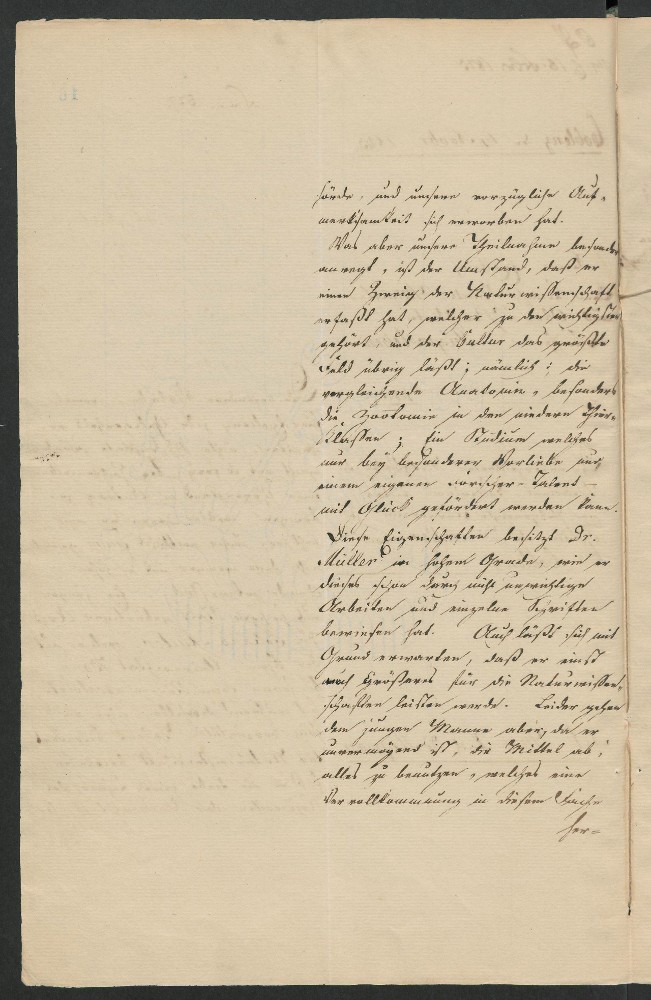 hörde, und unsere vorzügliche Auf-
merksamkeit sich erworben hat.
Was aber unsere Theilnahme besonders
anregt, ist der Umstand, daß er
einen Zweig der Naturwissenschaft
erfaßt hat, welcher zu den wichtigsten
gehört, und der Cultur das größte
Feld übrig läßt; nämlich: die
vergleichende Anatomie, besonders
die Zootomie in den niedern Thier-
Klassen; Ein Studium welches
nur bey besonderer Vorliebe und
einem eigenen Forscher-Talent
mit Glück gefördert werden kann.
Diese Eigenschaften besitzt Dr.
Müller in hohem Grade, wie er
dieses schon durch nicht unwichtige
Arbeiten und einzelne Schriften
bewiesen hat. Auch läßt sich mit
Grund erwarten, daß er einst
noch Größeres für die Naturwissen-
schaften leisten werde. Leider gehen
dem jungen Manne aber, da er
unvermögend ist, die Mittel ab,
alles zu benutzen, welches eine
Vervollkommnung in diesem Fache
her=